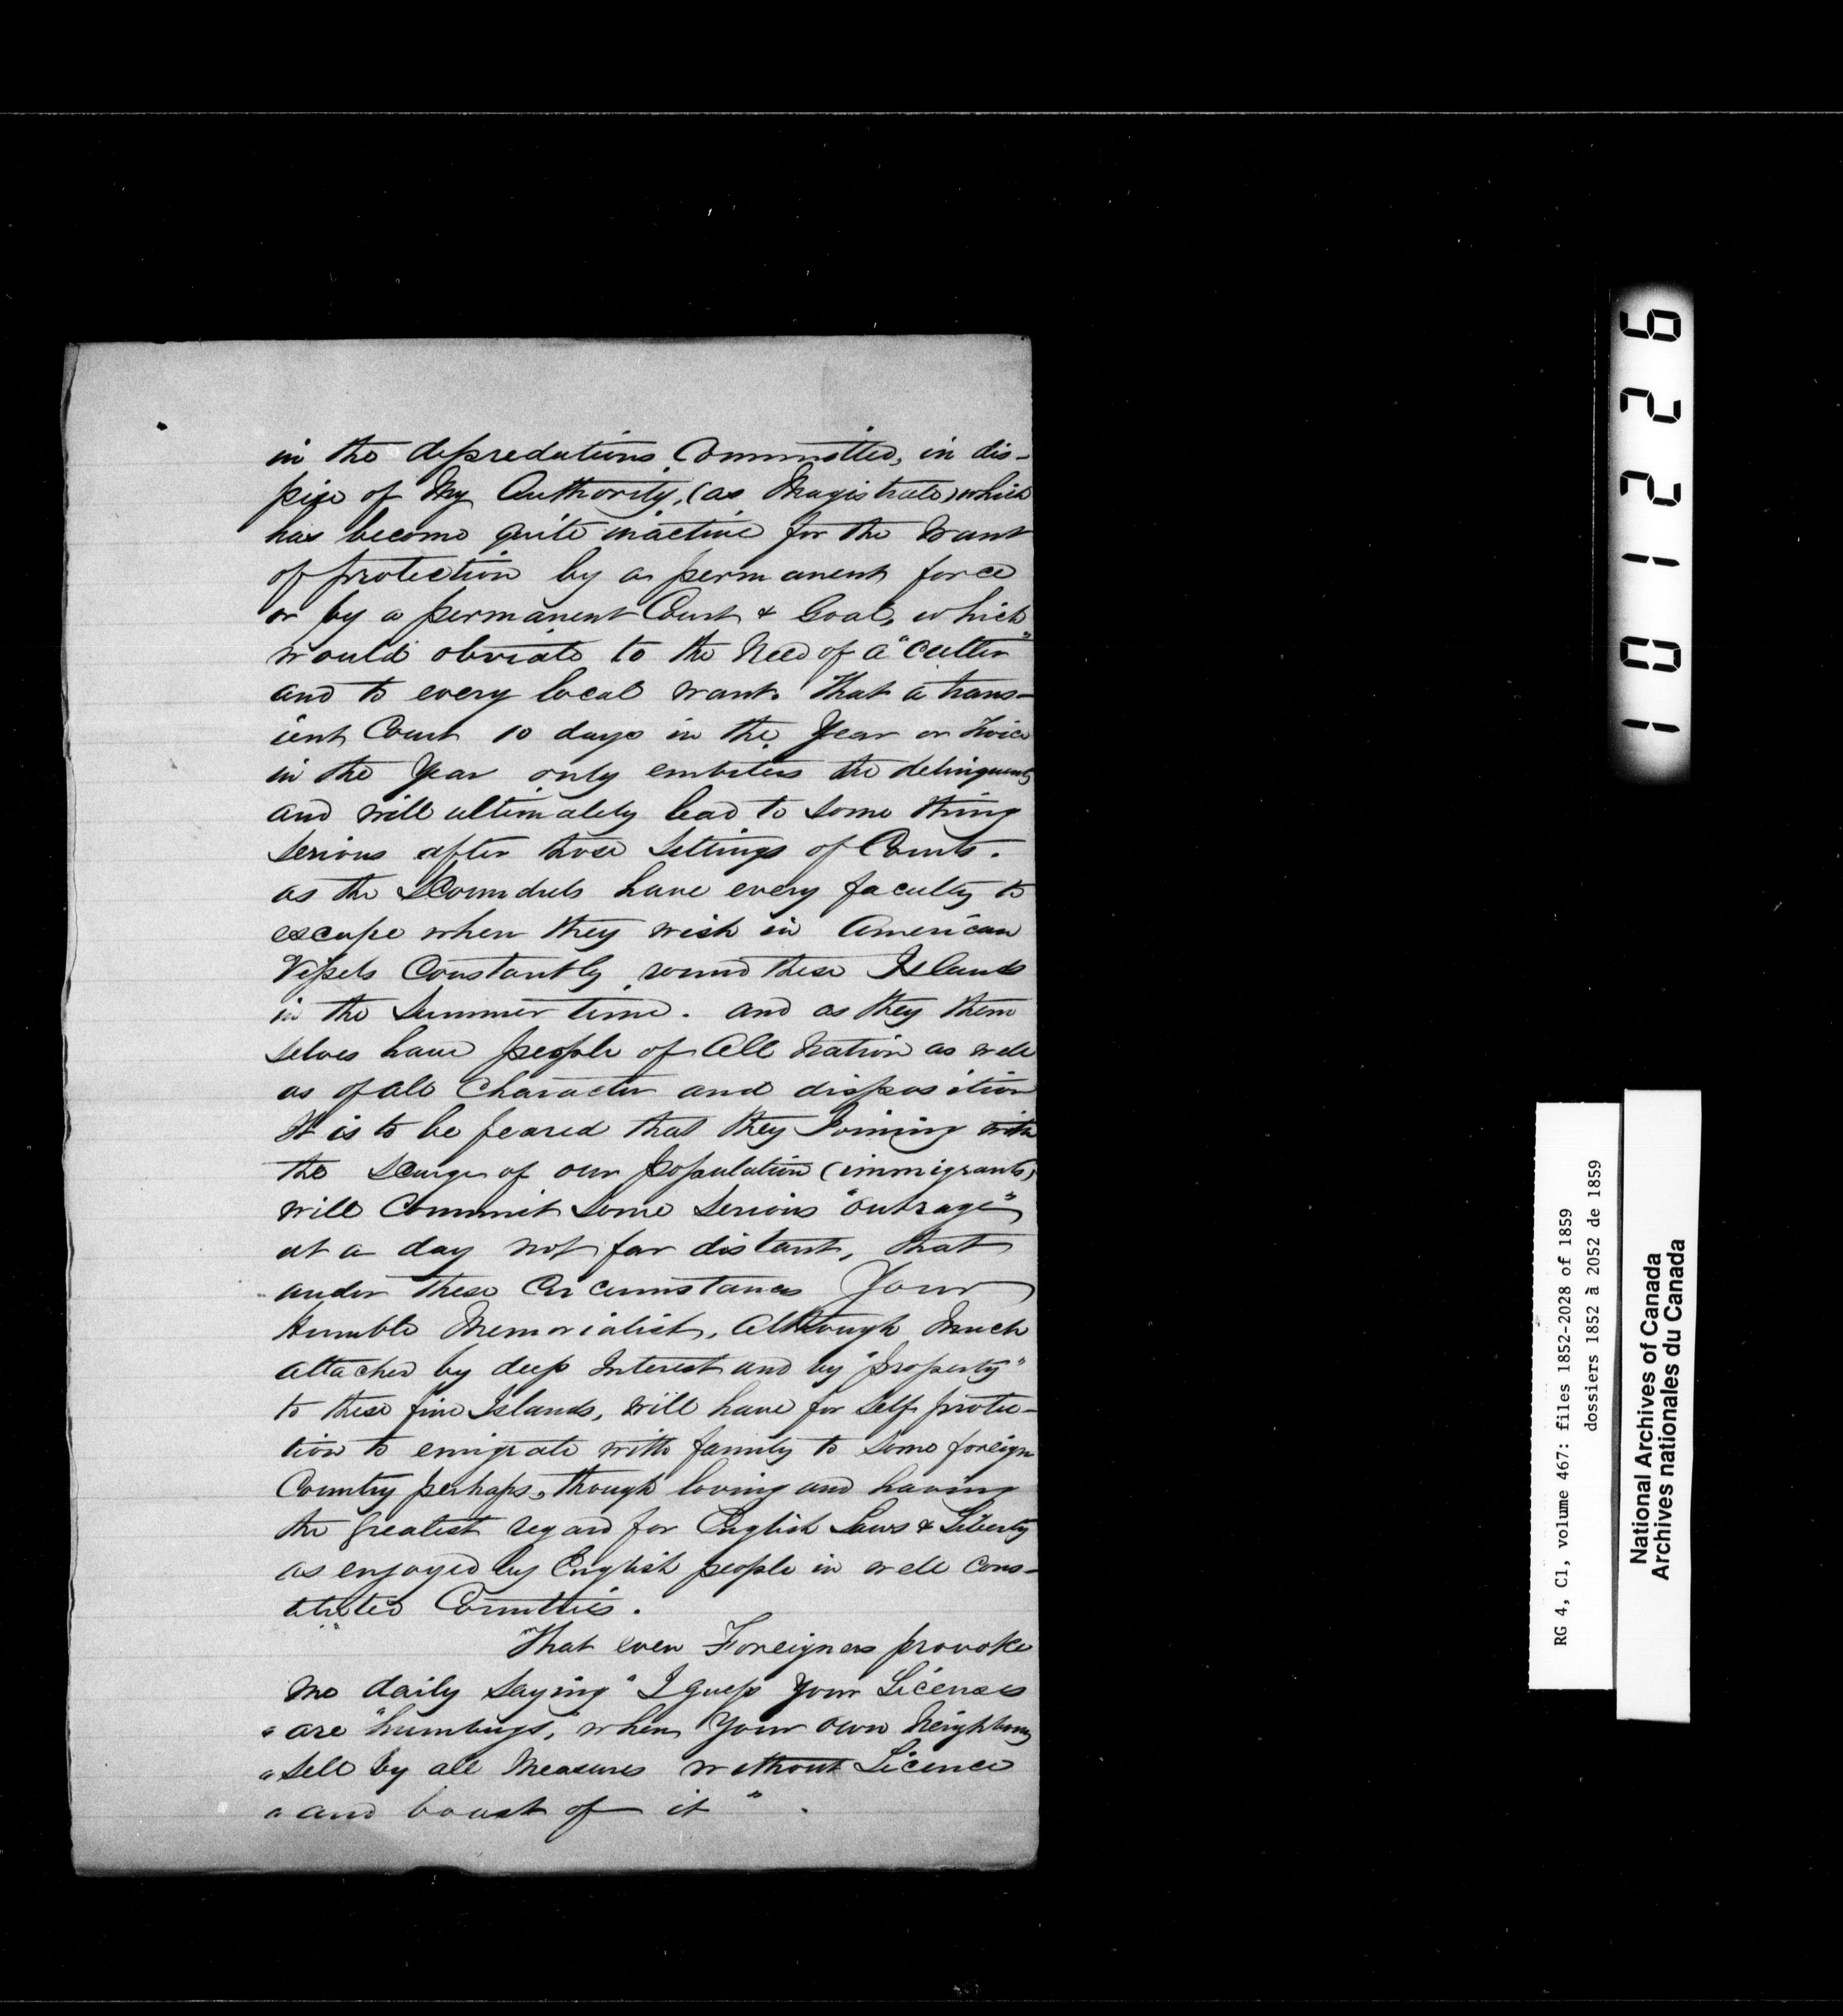 in the depredations Committed, in dis-
pise of My Authority, (as Magistrate) which
has become quite inactive for the want
of protection by a permanent force
or by a permanent Court & Goal, which
would obviate to the Need of a "Cutter"
and to every local want. That a trans-
ient Court 10 days in the Year or twice
in the Year only embiters the delinquents
and will ultimately lead to some thing
serious after those Settings of Courts.
as the Scoundrels have every faculty to
escape when they wish in American
Vessels Constantly round these Islands
in the Summer time. and as they them
selves have people of All Nation as well
as of all Character and disposition
It is to be feared that they Joining with
the Scurge of our population (immigrants)
will Commit some serious "outrage"
at a day not far distant, that
under these Circumstances Your
Humble Memorialist, Although Much
attached by deep Interest and by "property"
to these fine Islands, will have for Self protec-
tion to emigrate with family to some foreign
Country perhaps, though loving and having
the greatest regard for English Laws & Liberty
as enjoyed by English people in well cons-
tituted Counties.
That even Foreigners provoke
Me daily saying "I guess Your Licenses
" are "humbugs", when Your own Neighbours
" sell by all Measures without Licence
" and boast of it " .
101226
RG 4, C1, volume 467: files 1852-2028 of 1859
dossiers 1852 à 2052 de 1859
National Archives of Canada
Archives nationales du Canada